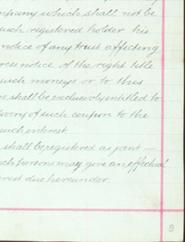 company which shall not be
such registered holder his
notice of any trust affecting
notice of the right title
such moneys or to this
shall be exclusively entitled to
of such coupon to the
such interest
shall be registered as joint
such persons may give an effectual
due hereunder.